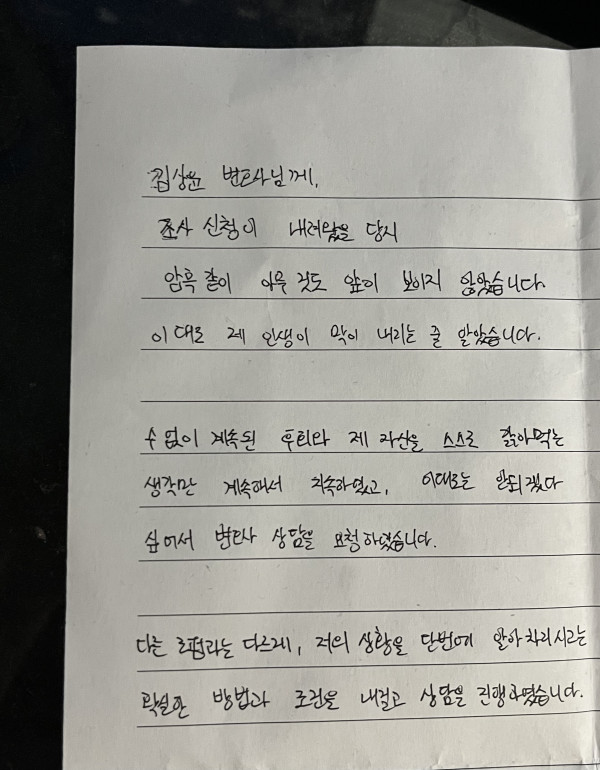 김상윤 변호사님께,
조사 신청이 내려왔을 당시
암흑 같이 아무 것도 앞이 보이지 않았습니다.
이대로 제 인생이 막이 내리는 줄 알았습니다.
수 없이 계속된 후회와 제 자신을 스스로 갉아먹는
생각만 계속해서 지속하였고, 이대로는 안되겠다
싶어서 변호사 상담을 요청하였습니다.
다른 로펌과는 다르게, 저의 상황을 단번에 알아차리시고는
확실한 방법과 조건을 내걸고 상담을 진행하였습니다.